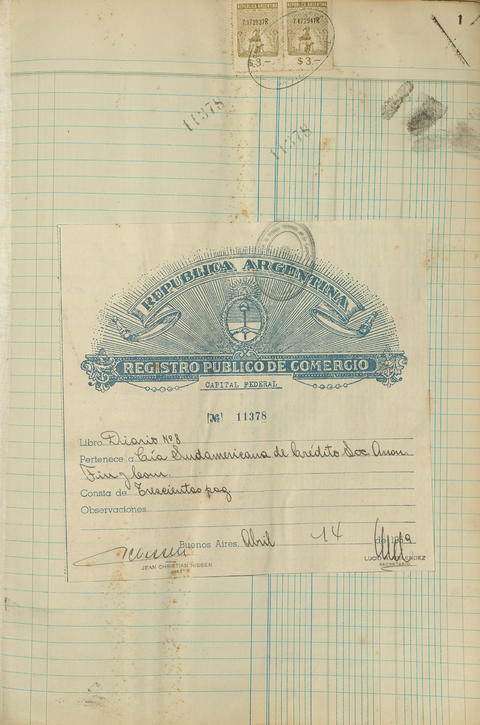 REPUBLICA ARGENTINA REPUBLICA ARGENTINA
$ 3.— $ 3.—
1
11378
11378
REPUBLICA ARGENTINA
REGISTRO PUBLICO DE COMERCIO
CAPITAL FEDERAL
Nº 11378
Libro Diario Nº 8
Pertenece a Cía Sudamericana de Crédito Soc. Anon.
Fin y Com.
Consta de Trescientas pag
Observaciones
Buenos Aires, Abril 14 de 19
JEAN CHRISTIAN NISSEN
SECRETARIO